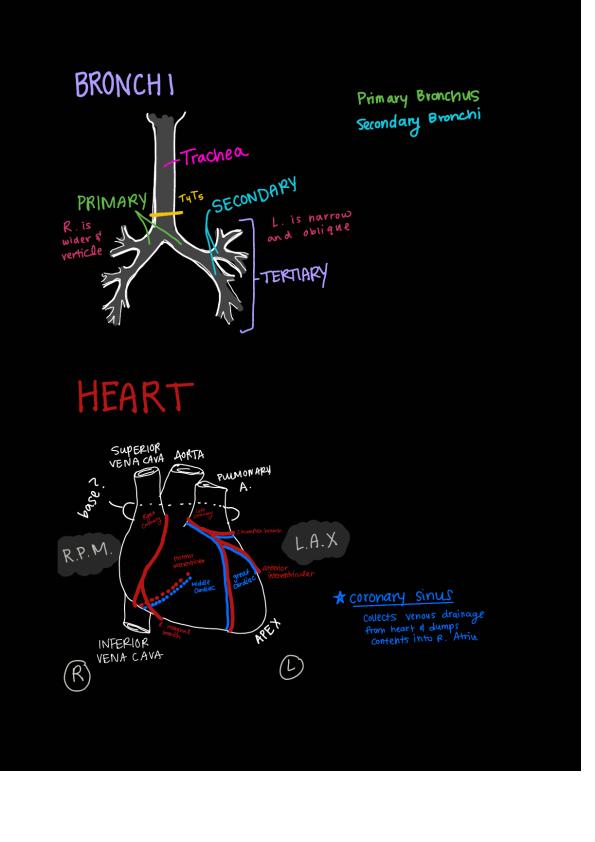 BRONCHI
Primary Bronchus
Secondary Bronchi
Trachea
PRIMARY
T4T5
SECONDARY
R. is
wider &
verticle
L. is narrow
and oblique
TERTIARY
HEART
SUPERIOR
VENA CAVA
AORTA
PULMONARY
A.
base?
Right
coronary
Left
coronary
Circumflex branch
R.P.M.
L.A.X
Posterior
interventricular
Middle
Cardiac
great
Cardiac
anterior
interventricular
marginal
branch
INFERIOR
VENA CAVA
APEX
R
L
★ coronary sinus
Collects venous drainage
from heart & dumps
contents into R. Atriu